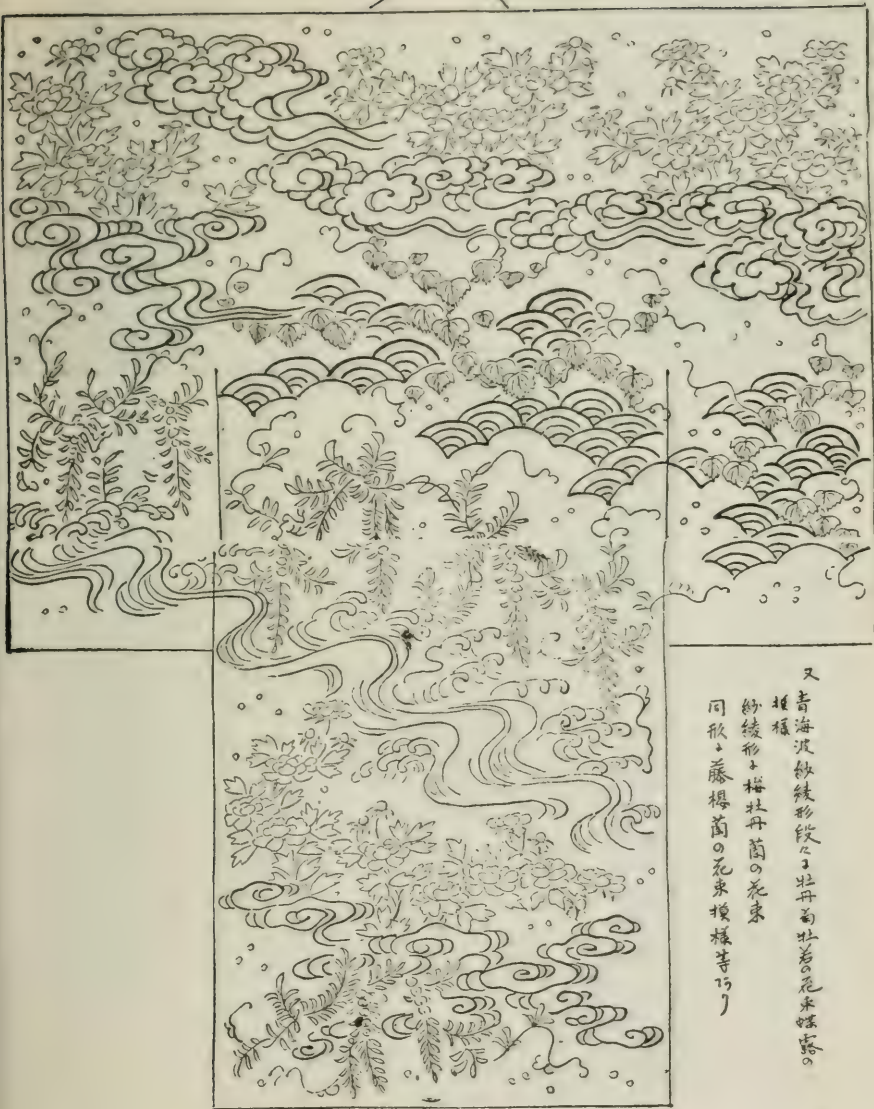 又青海波紗綾形段々に牡丹菊杜若の花束蝶露の
模様
紗綾形に梅牡丹菊の花束
同形に藤櫻菊の花束模様等あり